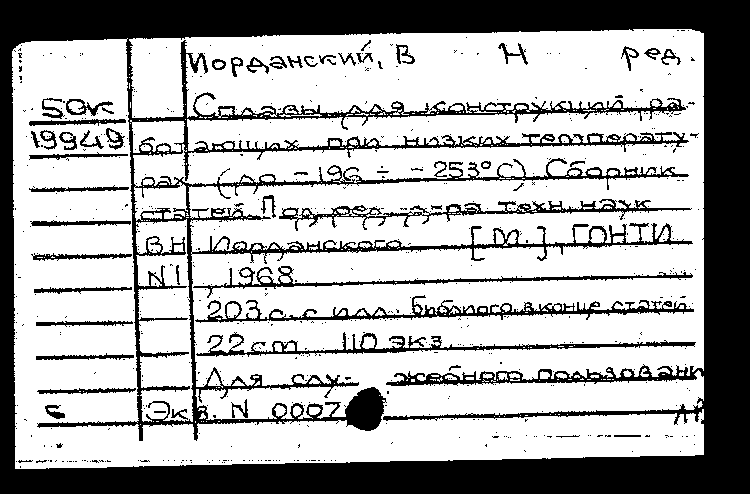 Иорданский, В Н ред.
50к Сплавы для конструкций, ра-
19949 ботающих при низких температу-
рах (до -196 ÷ -253°С) Сборник
статей Под ред. д-ра техн. наук
В Н Иорданского [М.], ГОНТИ
N1, 1968
203 с. с илл. Библиогр. в конце статей
22 см 110 экз.
Для слу- жебного пользовани
Экз. N 0007